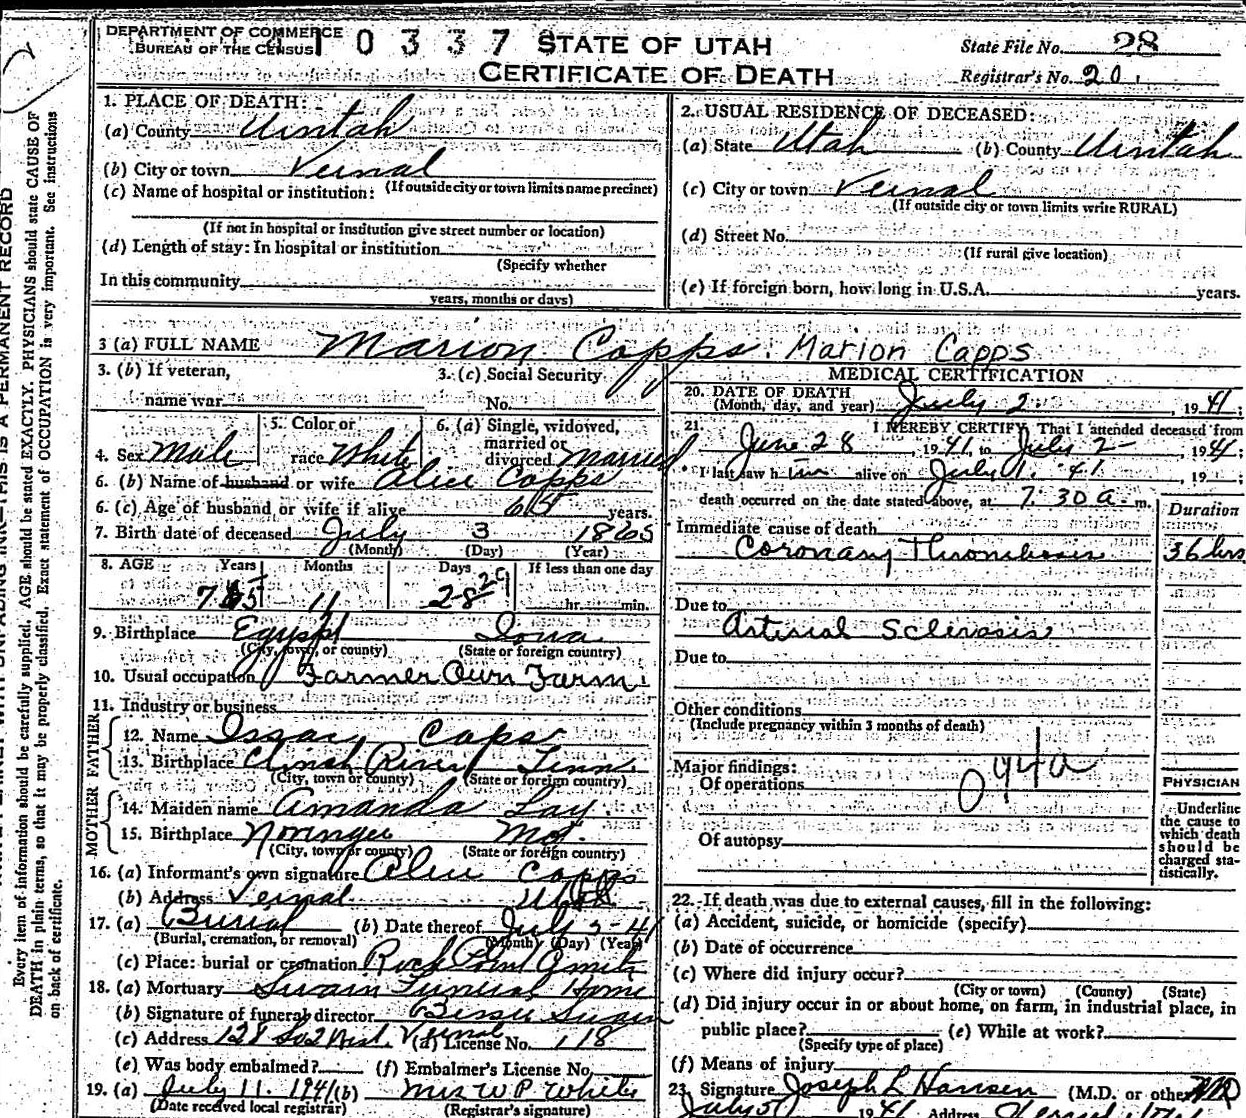 DEPARTMENT OF COMMERCE
BUREAU OF THE CENSUS
0 3 3 7 STATE OF UTAH
CERTIFICATE OF DEATH
State File No. 28
Registrar's No. 20
1. PLACE OF DEATH:
(a) County Uintah
(b) City or town Vernal
(c) Name of hospital or institution: (If outside city or town limits name precinct)
(If not in hospital or institution give street number or location)
(d) Length of stay: In hospital or institution
(Specify whether
In this community
years, months or days)
2. USUAL RESIDENCE OF DECEASED:
(a) State Utah (b) County Uintah
(c) City or town Vernal
(If outside city or town limits write RURAL)
(d) Street No.
(If rural give location)
(e) If foreign born, how long in U.S.A. years.
3 (a) FULL NAME Marion Capps. Marion Capps
3. (b) If veteran,
name war
3. (c) Social Security
No.
4. Sex Male
5. Color or
race White
6. (a) Single, widowed,
married or
divorced Married
6. (b) Name of husband or wife Alice Capps
6. (c) Age of husband or wife if alive 65 years.
7. Birth date of deceased July 3 1865
(Month) (Day) (Year)
8. AGE Years Months Days If less than one day
75 11 28 29 hr. min.
9. Birthplace Egypt Iowa
(City, town, or county) (State or foreign country)
10. Usual occupation Farmer Own Farm
11. Industry or business
FATHER
12. Name Issac Caps
13. Birthplace Clinch River Tenn
(City, town or county) (State or foreign country)
MOTHER
14. Maiden name Amanda Lay
15. Birthplace Mot.
(City, town or county) (State or foreign country)
16. (a) Informant's own signature Alice Capps
(b) Address Vernal Utah
17. (a) Burial (b) Date thereof July 2-41
(Burial, cremation, or removal) (Month) (Day) (Year)
(c) Place: burial or cremation Rock Point
18. (a) Mortuary Swain Funeral Home
(b) Signature of funeral director Bessie Swain
(c) Address 128 So 2 West. Vernal (d) License No. 118
(e) Was body embalmed? (f) Embalmer's License No.
19. (a) July 11. 1941 (b) Mrs W P White
(Date received local registrar) (Registrar's signature)
MEDICAL CERTIFICATION
20. DATE OF DEATH
(Month, day, and year) July 2, 1941;
21. I HEREBY CERTIFY That I attended deceased from
June 28, 1941, to July 2 1941;
I last saw him alive on July 1, 41, 19 ;
death occurred on the date stated above, at 7:30 a. m.
Duration
Immediate cause of death
Coronary Thrombosis 36 hrs
Due to
Arterial Sclerosis
Due to
Other conditions
(Include pregnancy within 3 months of death)
Major findings:
Of operations 094a
Of autopsy
PHYSICIAN
Underline
the cause to
which death
should be
charged sta-
tistically.
22. If death was due to external causes, fill in the following:
(a) Accident, suicide, or homicide (specify)
(b) Date of occurrence
(c) Where did injury occur?
(City or town) (County) (State)
(d) Did injury occur in or about home, on farm, in industrial place, in
public place? (e) While at work?
(Specify type of place)
(f) Means of injury
23. Signature Joseph L Hansen (M.D. or other MD
July 5 1941 Address
Every item of information should be carefully supplied. AGE should be stated EXACTLY. PHYSICIANS should state CAUSE OF
DEATH in plain terms, so that it may be properly classified. Exact statement of OCCUPATION is very important. See instructions
on back of certificate.
THIS IS A PERMANENT RECORD